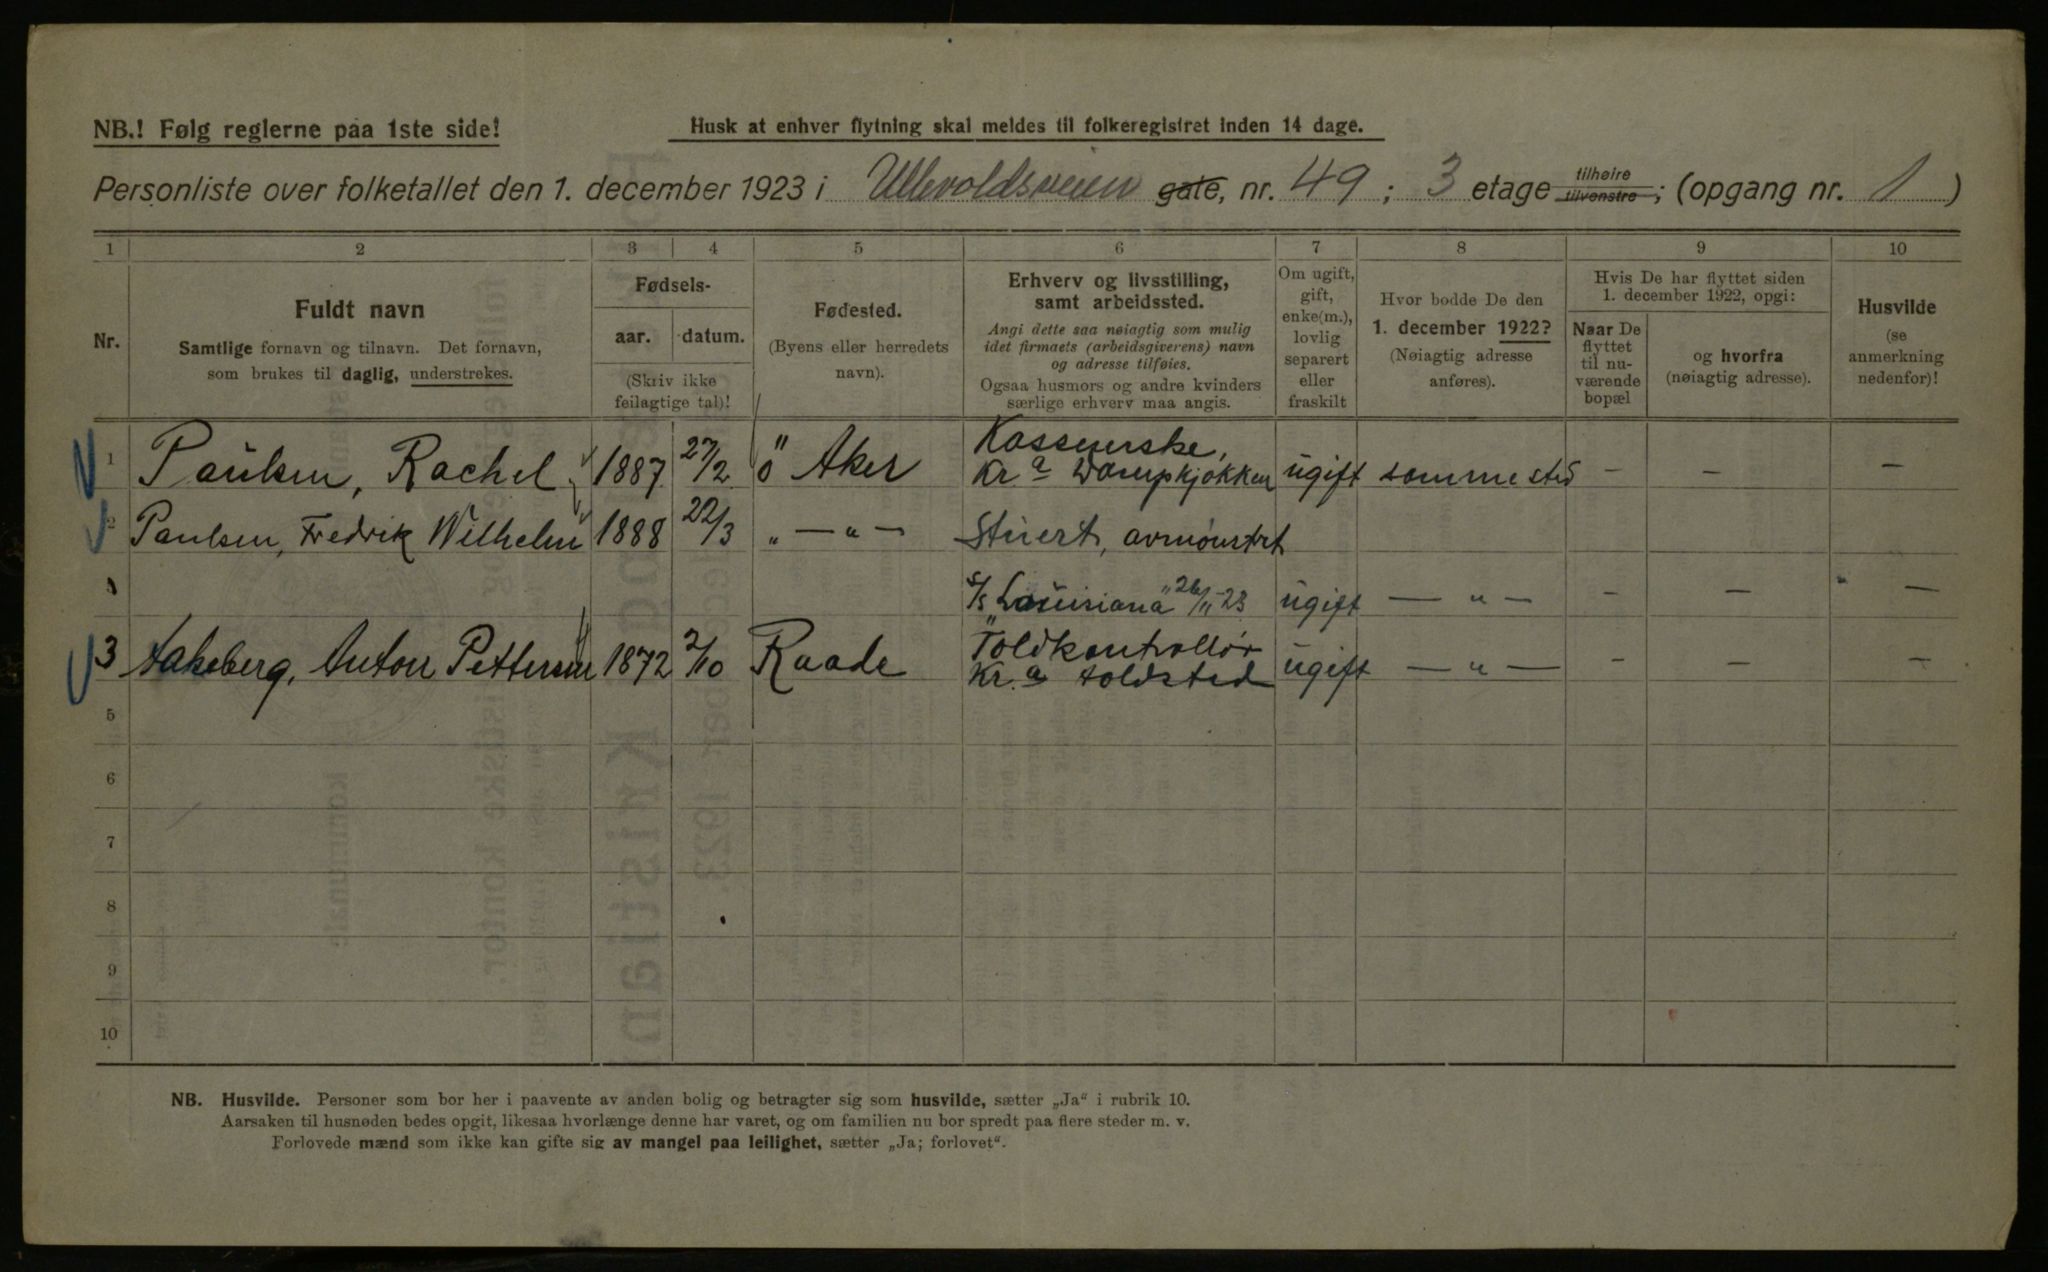 NB.! Følg reglerne paa 1ste side!
Husk at enhver flytning skal meldes til folkeregistret inden 14 dage.
Personliste over folketallet den 1. december 1923 i Ullevoldsveien gate, nr. 49; 3 etage tilhøire tilvenstre; (opgang nr. 1)
1 2 3 4 5 6 7 8 9 10
Nr.
Fuldt navn
Samtlige fornavn og tilnavn. Det fornavn,
som brukes til daglig, understrekes.
Fødsels-
aar. datum.
(Skriv ikke
feilagtige tal)!
Fødested.
(Byens eller herredets
navn).
Erhverv og livsstilling,
samt arbeidssted.
Angi dette saa nøiagtig som mulig
idet firmaets (arbeidsgiverens) navn
og adresse tilføies.
Ogsaa husmors og andre kvinders
særlige erhverv maa angis.
Om ugift,
gift,
enke(m.),
lovlig
separert
eller
fraskilt
Hvor bodde De den
1. december 1922?
(Nøiagtig adresse
anføres).
Hvis De har flyttet siden
1. december 1922, opgi:
Naar De
flyttet
til nu-
værende
bopæl
og hvorfra
(nøiagtig adresse).
Husvilde
(se
anmerkning
nedenfor)!
1 Paulsen, Rachel 1887 27/2 ö Aker Kassererske, Kr.a Dampkjøkken ugift samme sted – – –
2 Paulsen, Fredrik Wilhelm 1888 22/3 „ — „ — Stuert, avmønstret
s/s „Louisiana" 26/11-23 ugift — „ — – – –
3 Aakeberg, Anton Pettersen 1872 2/10 Raade Toldkontrollør Kr.a toldsted ugift — „ — – – –
5
6
7
8
9
10
NB. Husvilde. Personer som bor her i paavente av anden bolig og betragter sig som husvilde, sætter „Ja" i rubrik 10.
Aarsaken til husnøden bedes opgit, likesaa hvorlænge denne har varet, og om familien nu bor spredt paa flere steder m. v.
Forlovede mænd som ikke kan gifte sig av mangel paa leilighet, sætter „Ja; forlovet".